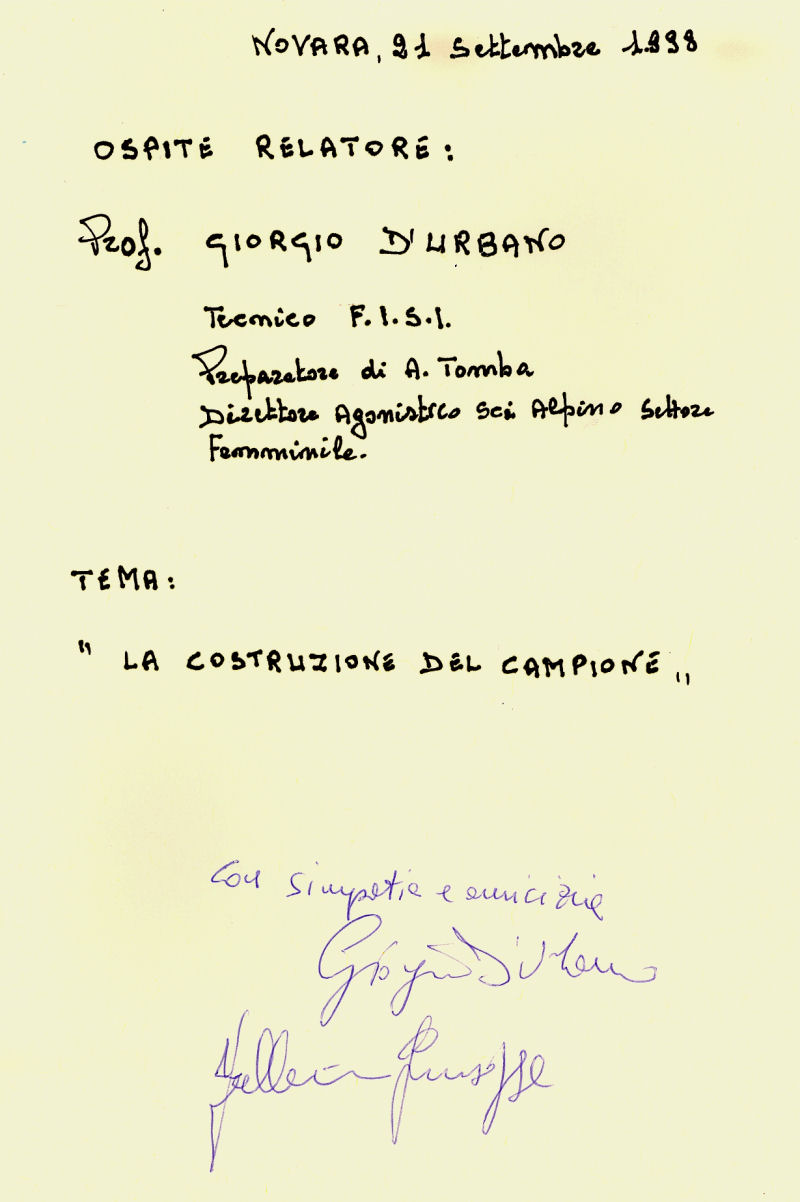 NOVARA, 21 Settembre 1998
OSPITE RELATORE:
Prof. GIORGIO D'URBANO
Tecnico F.I.S.I.
Preparatore di A. Tomba
Direttore Agonistico Sci Alpino Settore
Femminile.
TEMA:
" LA COSTRUZIONE DEL CAMPIONE "
Con simpatia e amicizia
Giorgio D'Urbano
Giuseppe